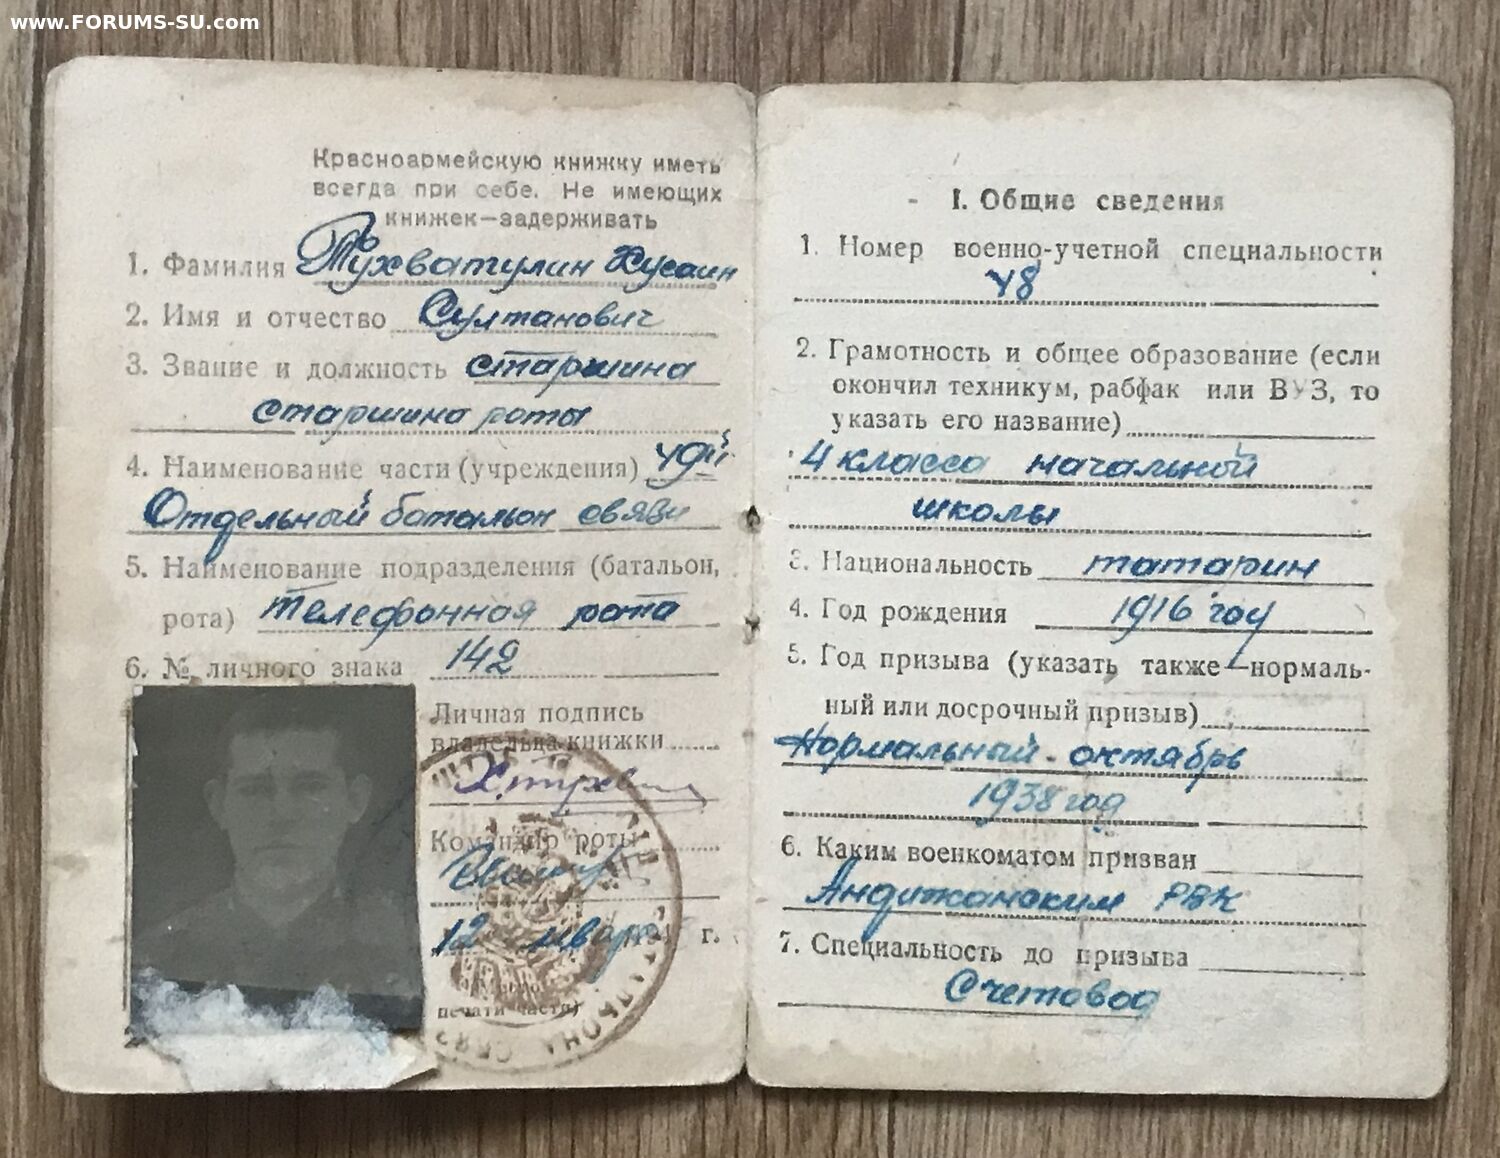 www.FORUMS-SU.com
Красноармейскую книжку иметь
всегда при себе. Не имеющих
книжек—задерживать
1. Фамилия Тухватулин Хусаин
2. Имя и отчество Султанович
3. Звание и должность старшина
старшина роты
4. Наименование части (учреждения) 49й
Отдельный батальон связи
5. Наименование подразделения (батальон,
рота) телефонная рота
6. № личного знака 142
Личная подпись
владельца книжки
Командир роты
12 января 194 г.
печати части)
БАТАЛЬОНА СВЯЗ
I. Общие сведения
1. Номер военно-учетной специальности
48
2. Грамотность и общее образование (если
окончил техникум, рабфак или ВУЗ, то
указать его название)
4 класса начальной
школы
3. Национальность татарин
4. Год рождения 1916 год
5. Год призыва (указать также—нормаль-
ный или досрочный призыв)
Нормальный - октябрь
1938 год
6. Каким военкоматом призван
Андижанским РВК
7. Специальность до призыва
Счетовод